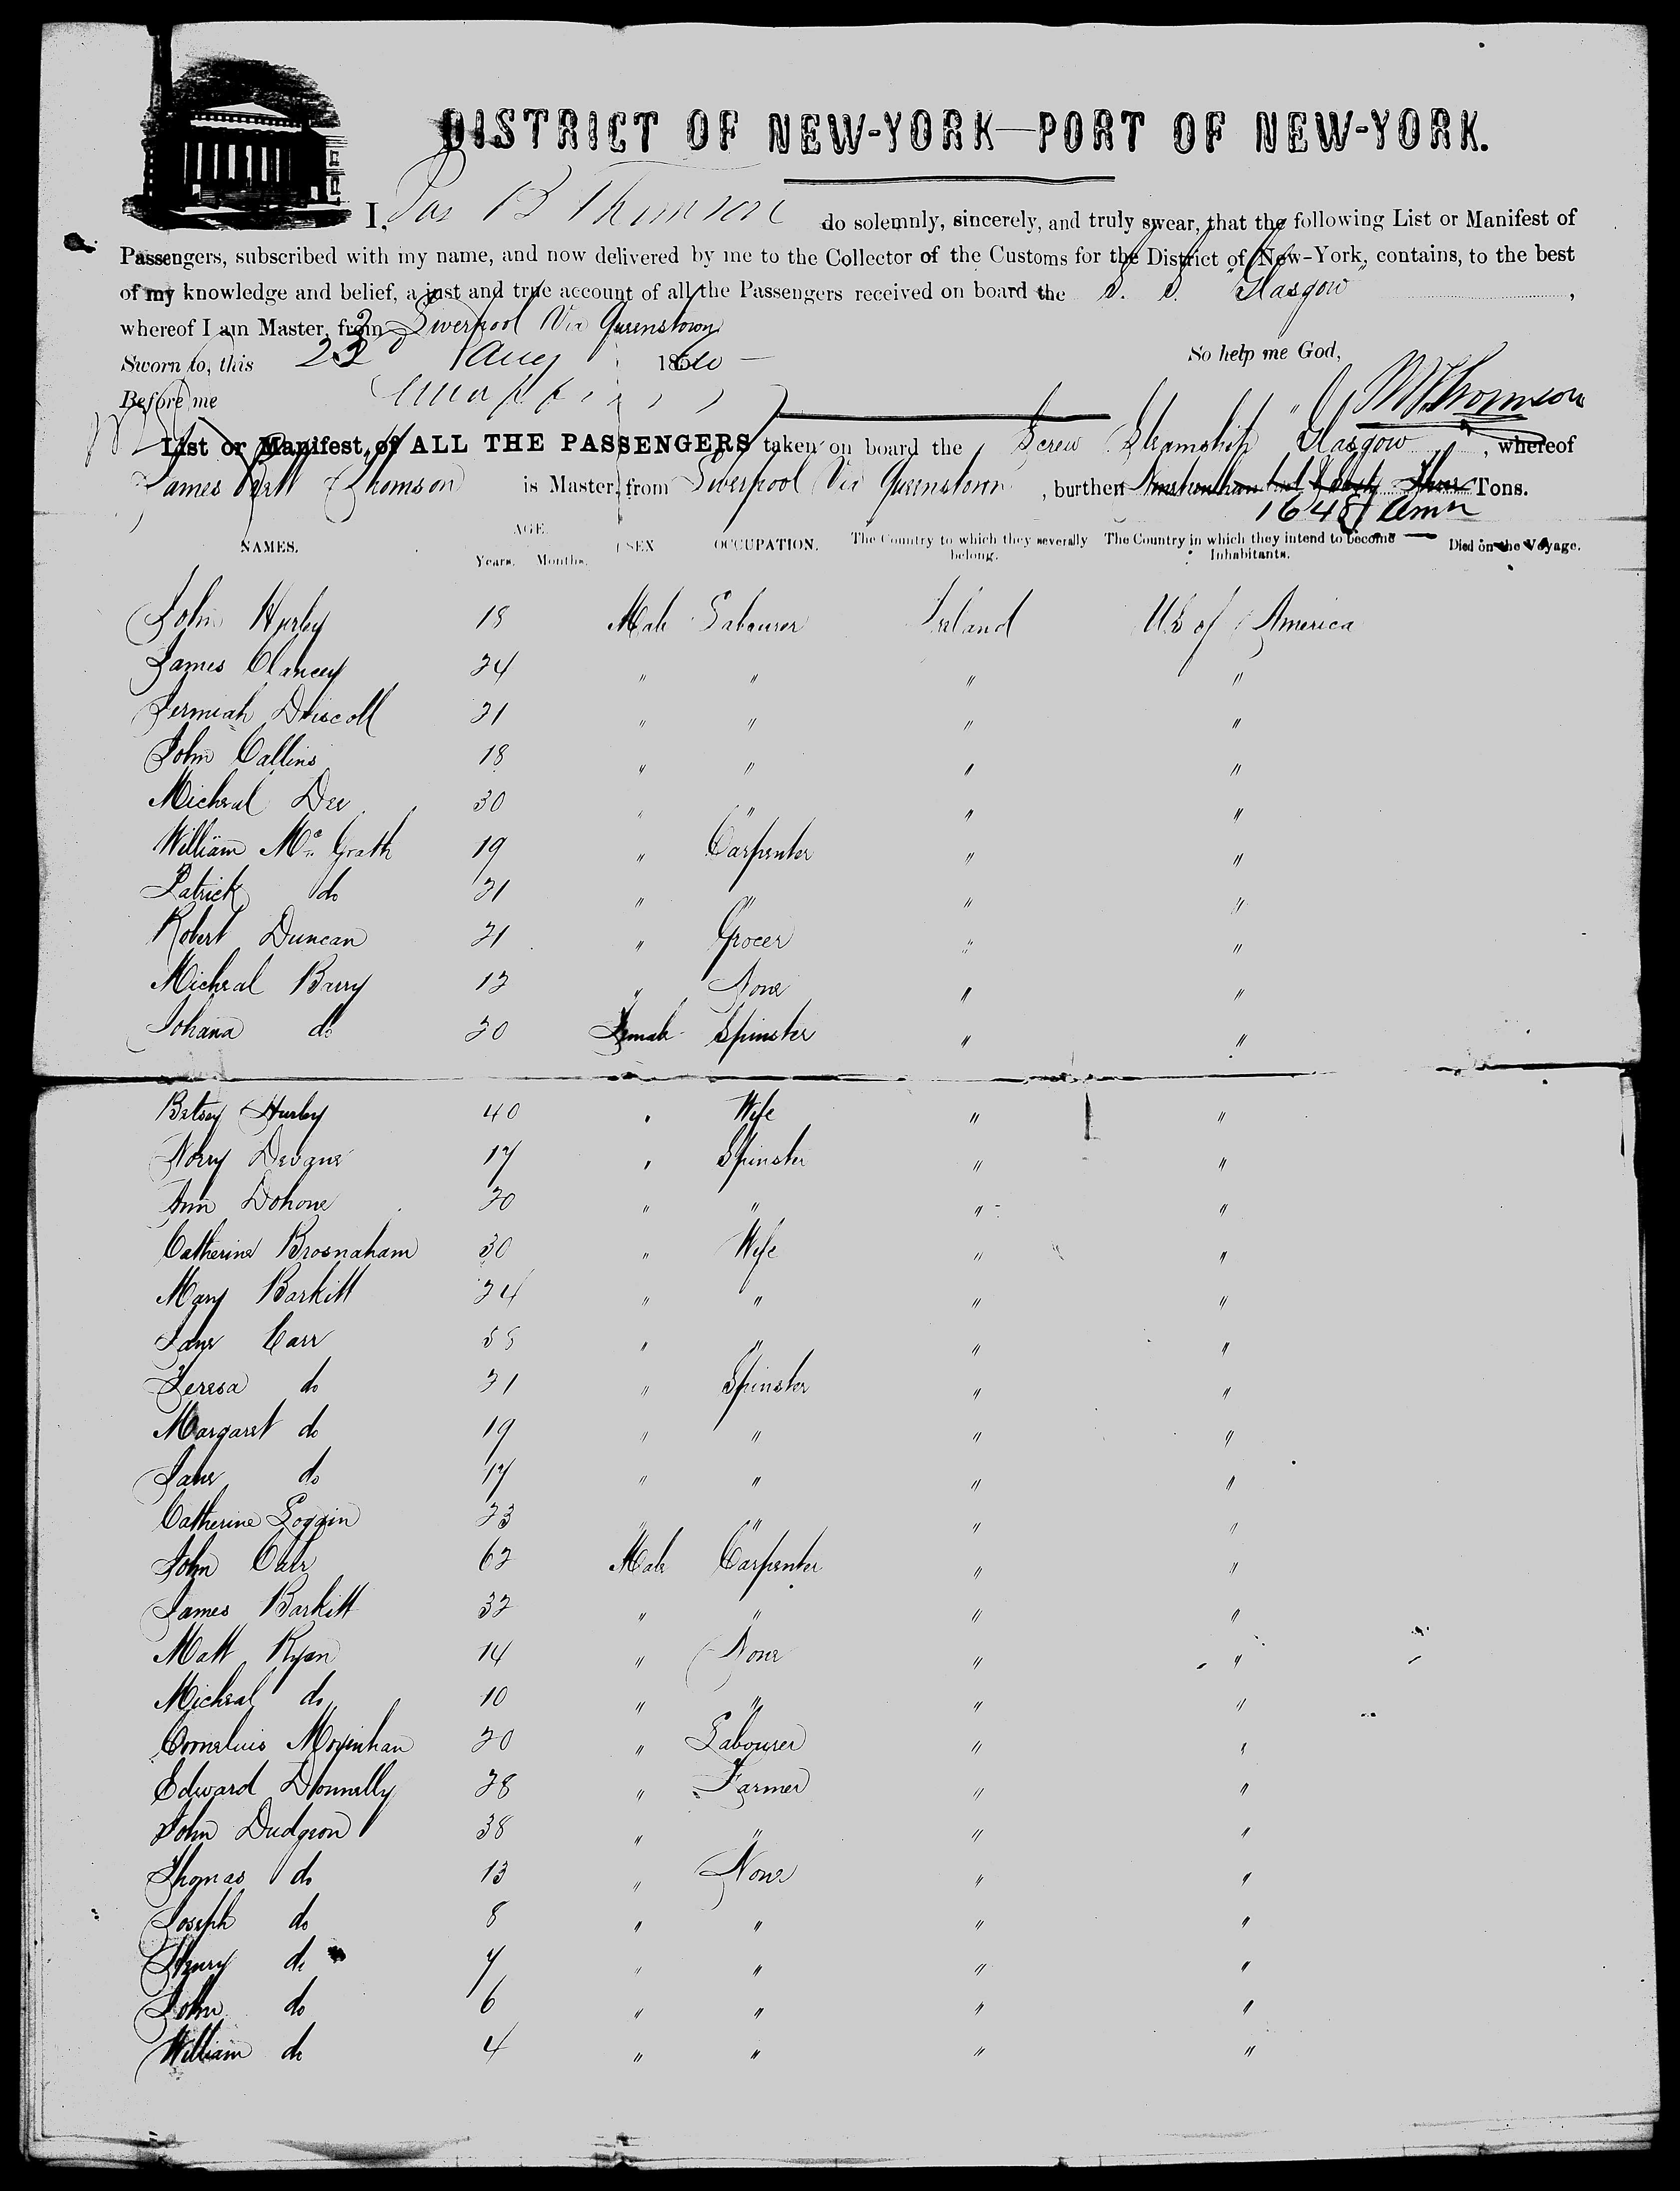 DISTRICT OF NEW-YORK—PORT OF NEW-YORK.
I, Jas B Thomson do solemnly, sincerely, and truly swear, that the following List or Manifest of
Passengers, subscribed with my name, and now delivered by me to the Collector of the Customs for the District of New-York, contains, to the best
of my knowledge and belief, a just and true account of all the Passengers received on board the S. S. "Glasgow",
whereof I am Master, from Liverpool Via Queenstown
Sworn to, this 23 Aug 1860 So help me God,
Before me Thomson
List or Manifest of ALL THE PASSENGERS taken on board the Screw Steamship "Glasgow", whereof
James Thomson is Master, from Liverpool Via Queenstown, burthen Tons.
1648
NAMES. AGE. Years. Months. SEX OCCUPATION. The Country to which they severally belong. The Country in which they intend to become Inhabitants. Died on the Voyage.
John Hurley 18 Male Labourer Ireland US of America
James Clancey 24 " " " "
Jermiah Driscoll 21 " " " "
John Callins 18 " " " "
Micheal Dee 30 " " " "
William Mc Grath 19 " Carpenter " "
Patrick do 21 " " " "
Robert Duncan 21 " Grocer " "
Micheal Barry 12 " None " "
Johana do 20 Female Spinster " "
Betsey Hurley 40 " Wife " "
Norry Devane 17 " Spinster " "
Ann Dohone 20 " " " "
Catherine Brosnaham 30 " Wife " "
Mary Barkitt 24 " " " "
Jane Carr 55 " " " "
Teresa do 21 " Spinster " "
Margaret do 19 " " " "
Jane do 17 " " " "
Catherine Loggin 23 " " " "
John Carr 62 Male Carpenter " "
James Barkitt 32 " " " "
Matt Ryan 14 " None " "
Micheal do 10 " " " "
Cornelius Moyinhan 20 " Labourer " "
Edward Donnelly 28 " Farmer " "
John Dudgeon 38 " " " "
Thomas do 13 " None " "
Joseph do 8 " " " "
Henry do 7 " " " "
John do 6 " " " "
William do 4 " " " "